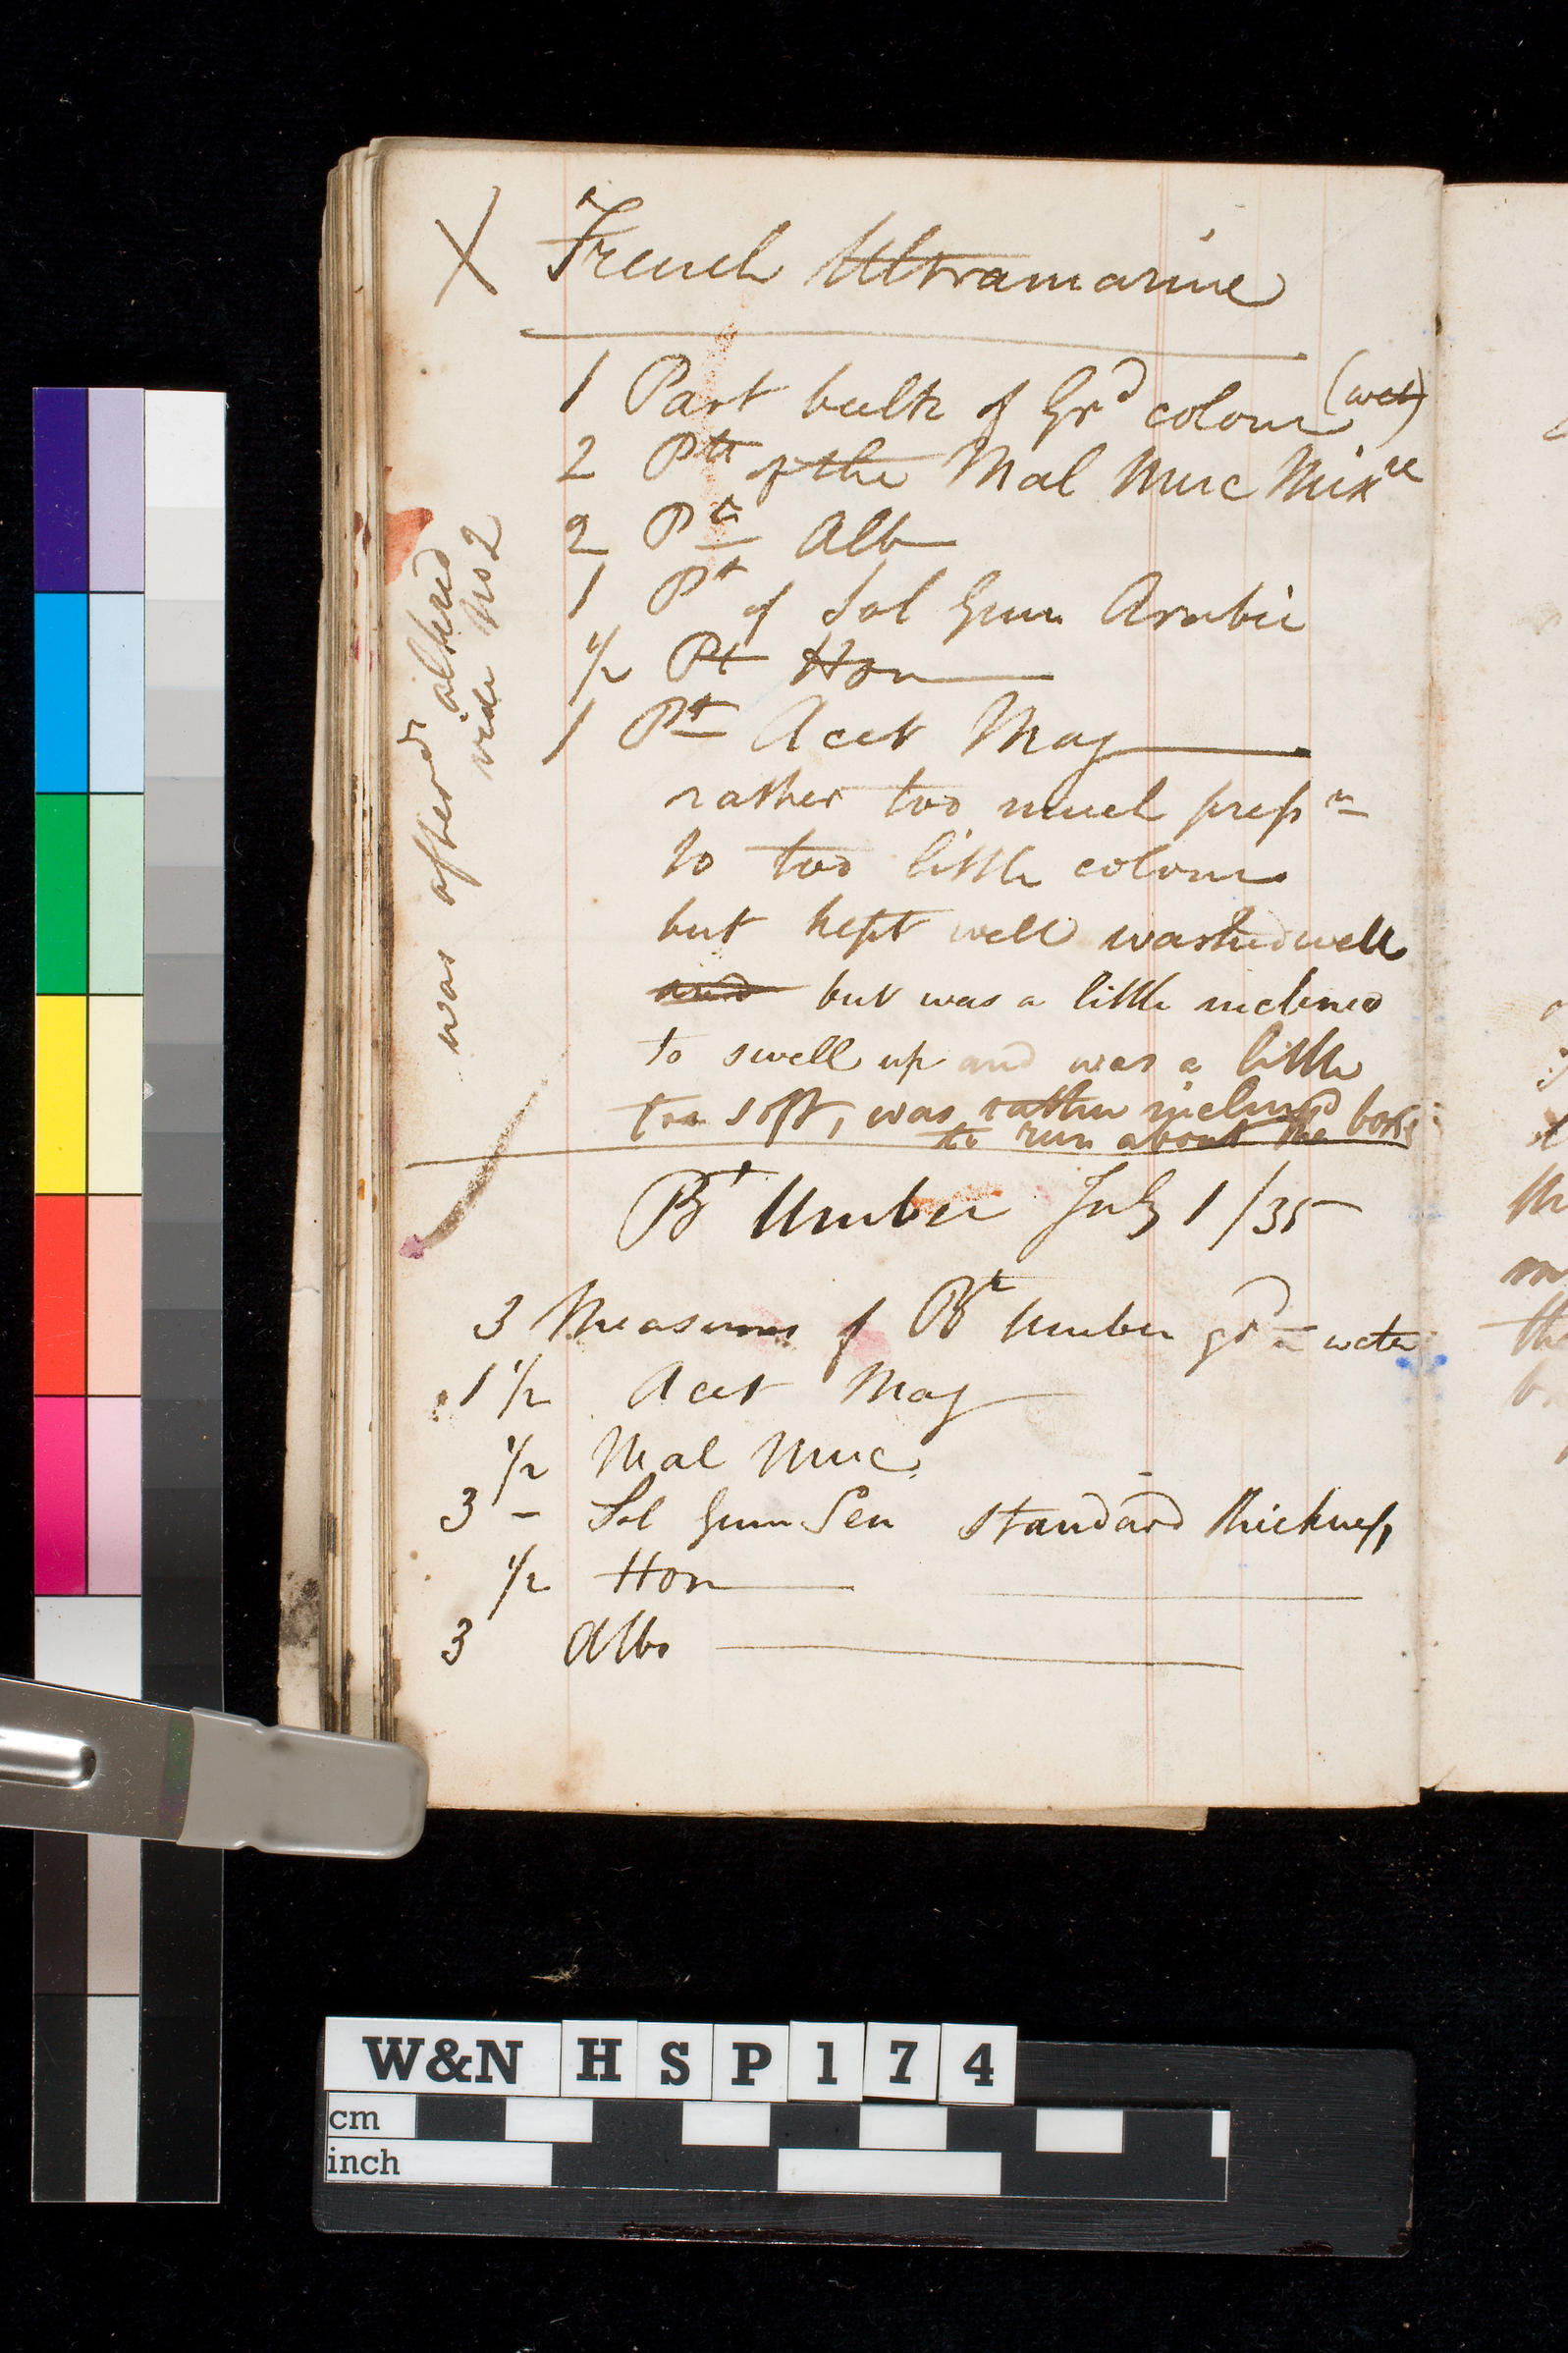 X French Ultramarine
1 Part bulk of Grd colour (wet)
2 Pts of the Mal Muc Mixre
2 Pts Alb
1 Pt of Sol Gum Arabic
1/2 Pt Hon
1 Pt Acet Mag
rather too much prepn
to too little colour
but kept well washed well
and but was a little inclined
to swell up and was a little
too soft, was rather inclined
to run about the box
was afterds altered
vide No 2
Bt Umber July 1/35
3 Measures of Bt Umber gd in water
1 1/2 Acet Mag
1/2 Mal Muc
3 - Sol Gum Sen standard thickness
1/2 Hon
3 Albo
W&N HSP174
cm
inch